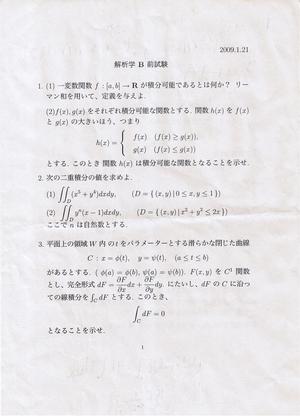 2009.1.21
解析学 B 前試験
1. (1) 一変数関数 f : [a, b] → R が積分可能であるとは何か? リー
マン和を用いて、定義を与えよ.
(2)f(x), g(x) をそれぞれ積分可能な関数とする. 関数 h(x) を f(x)
と g(x) の大きいほう、つまり
h(x) = { f(x) (f(x) ≥ g(x)),
g(x) (f(x) ≤ g(x))
とする. このとき 関数 h(x) は積分可能な関数となることを示せ.
2. 次の二重積分の値を求めよ.
(1) ∬_D (x⁵ + y⁶)dxdy, (D = {(x, y) | 0 ≤ x, y ≤ 1})
(2) ∬_D yⁿ(x − 1)dxdy, (D = {(x, y) | x² + y² ≤ 2x})
ここで n は自然数とする.
3. 平面上の領域 W 内 の t をパラメーターとする滑らかな閉じた曲線
C : x = φ(t), y = ψ(t), (a ≤ t ≤ b)
があるとする. ( φ(a) = φ(b), ψ(a) = ψ(b)). F(x, y) を C¹ 関数
とし、完全形式 dF = ∂F/∂x dx + ∂F/∂y dy. にたいし、dF の C に沿っ
ての線積分を ∫_C dF とする. このとき、
∫_C dF = 0
となることを示せ.
1